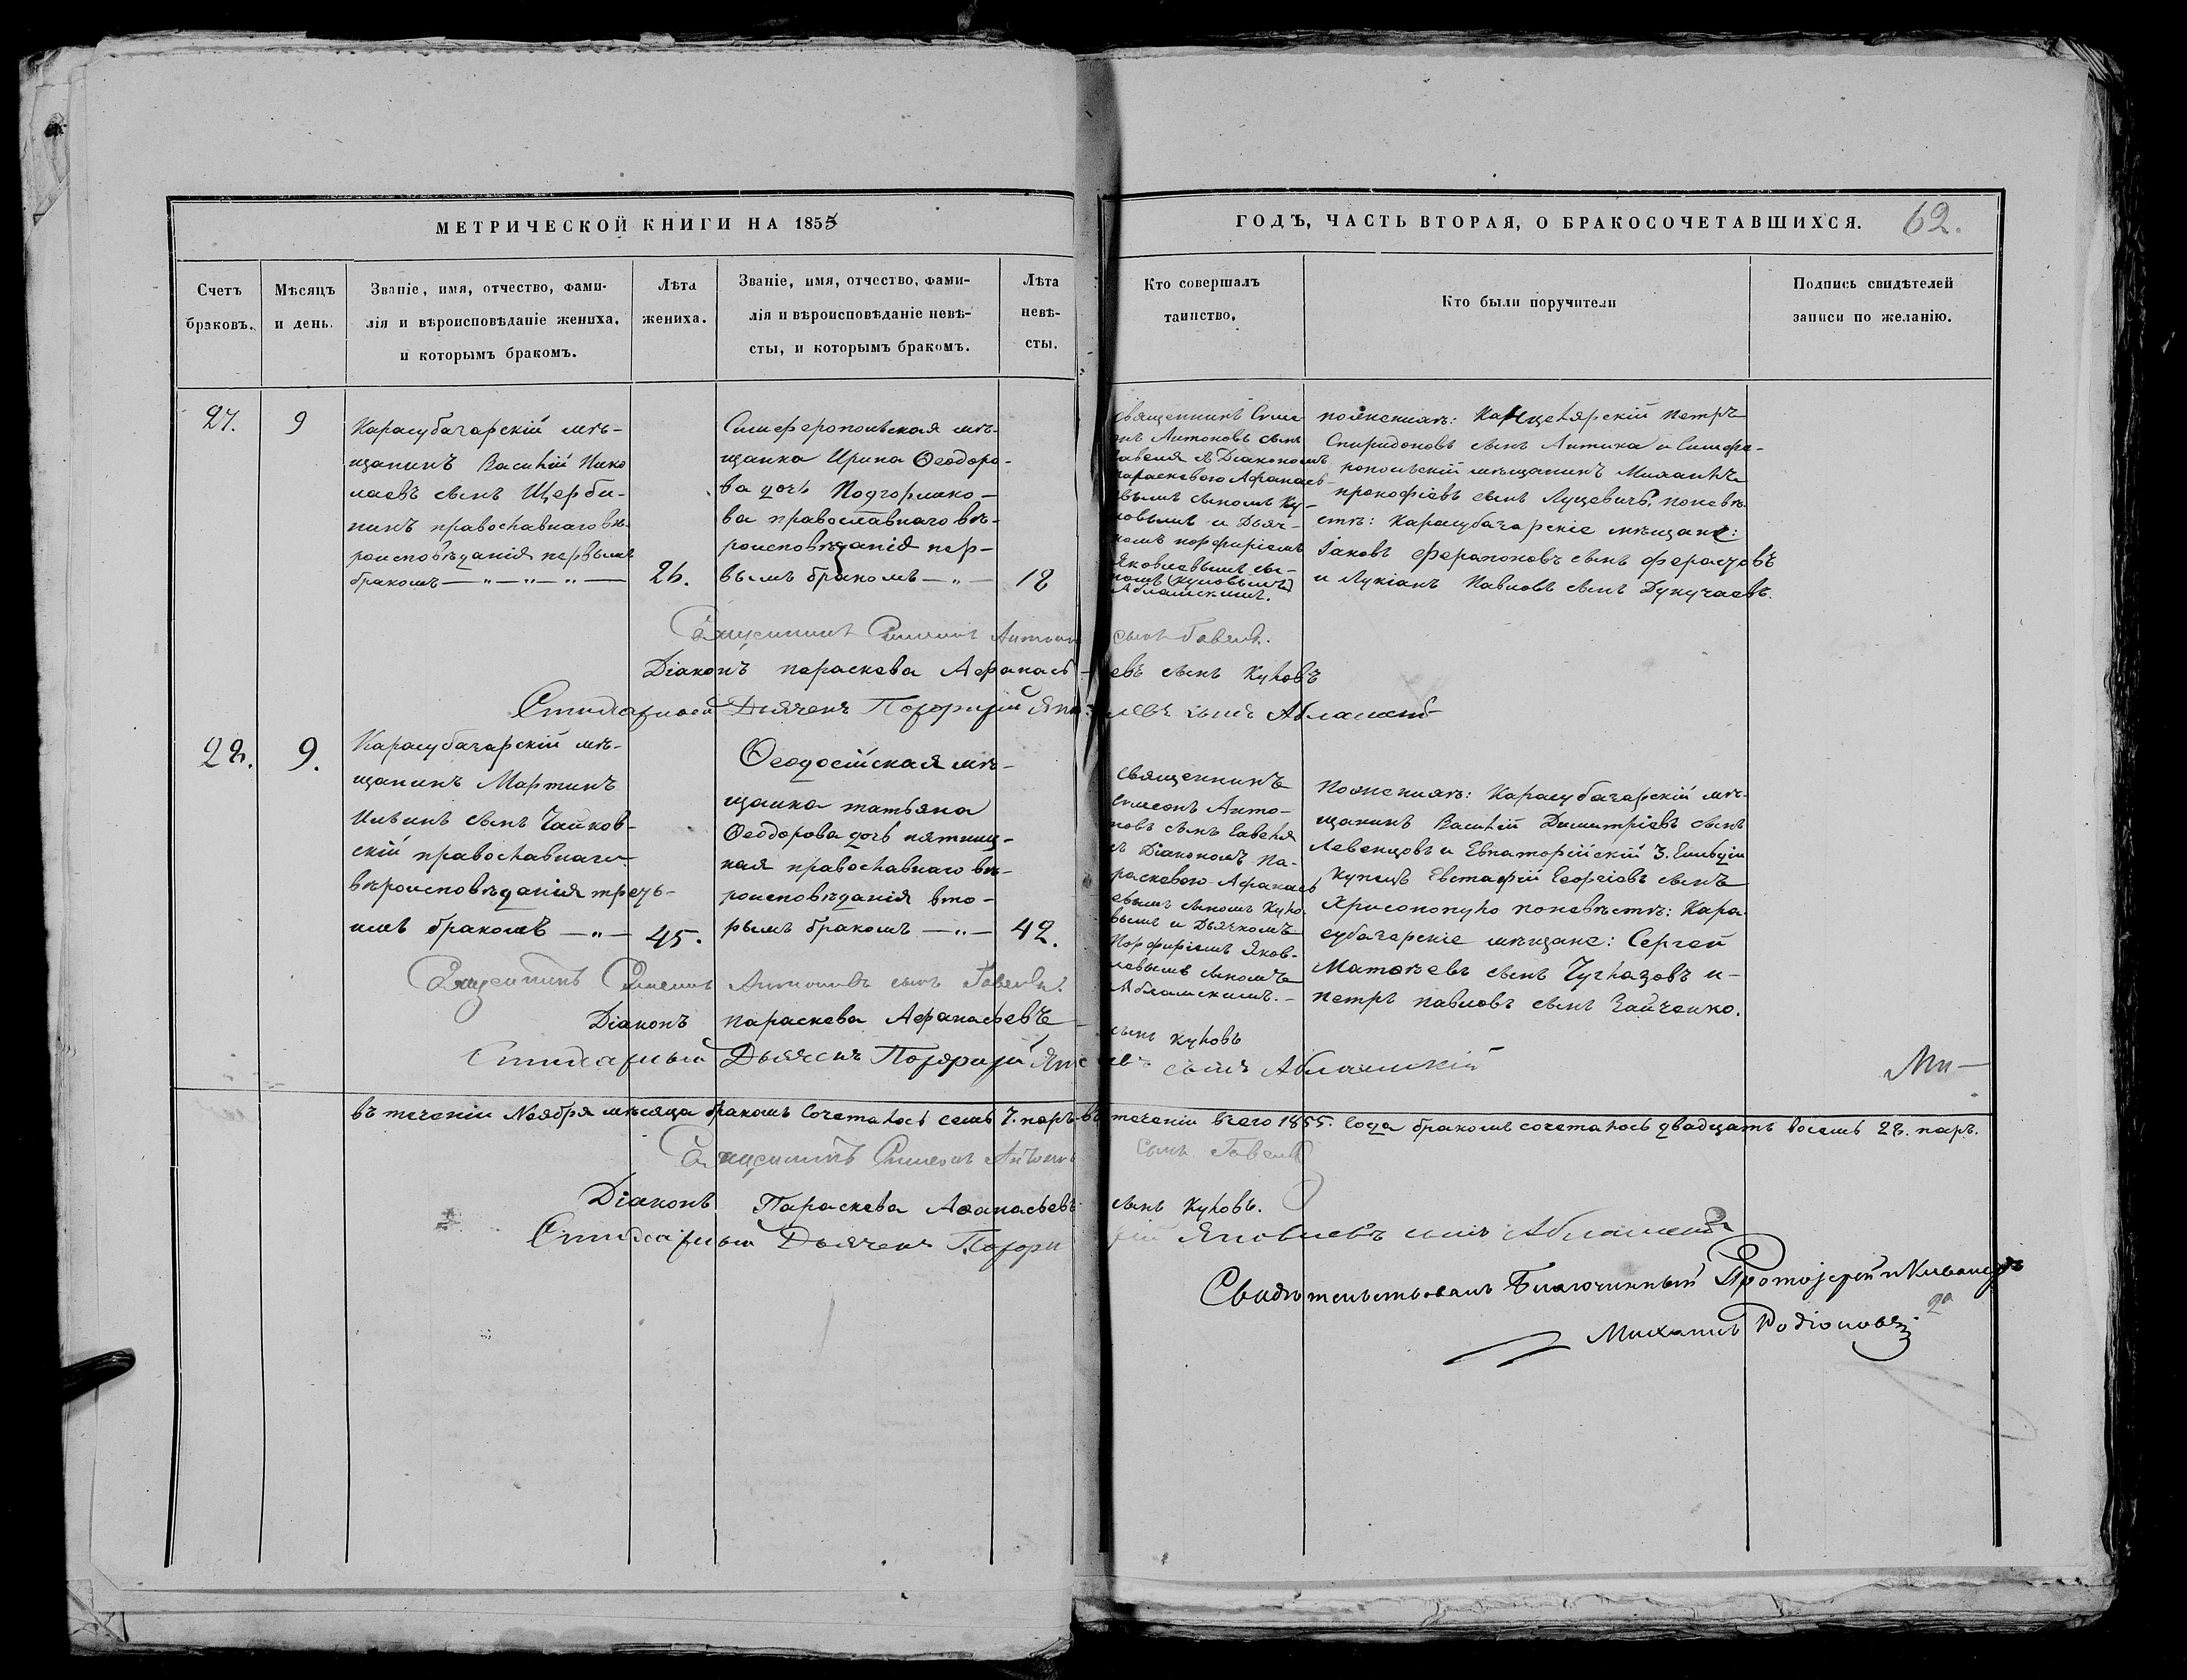 МЕТРИЧЕСКОЙ КНИГИ НА 1855
ГОДЪ, ЧАСТЬ ВТОРАЯ, О БРАКОСОЧЕТАВШИХСЯ.
62.
Счетъ
браковъ.
Мѣсяцъ
и день.
Званіе, имя, отчество, фами-
лія и вѣроисповѣданіе жениха,
и которымъ бракомъ.
Лѣта
жениха.
Званіе, имя, отчество, фами-
лія и вѣроисповѣданіе невѣ-
сты, и которымъ бракомъ.
Лѣта
невѣ-
сты.
Кто совершалъ
таинство.
Кто были поручители
Подпись свидѣтелей
записи по желанію.
27.
9
Карасубазарскій мѣ-
щанинъ Василій Нико
лаевъ сынъ Щерби-
нинъ православнаго вѣ-
роисповѣданія первымъ
бракомъ — „ — „ — „ —
26.
Симферопольская мѣ-
щанка Ирина Ѳеодоро-
ва дочь Подгорнако-
ва православнаго вѣ-
роисповѣданія пер-
вымъ бракомъ — „ —
18
священникъ Симе
онъ Антоновъ сынъ
Гавеля съ Діакономъ
параскевою Афанась-
вымъ сыномъ Ку-
ловымъ и Дьяч-
комъ порфиріемъ
Яковлевымъ сы-
номъ (Куловымъ)
Абламскимъ.
пожениха: Канцелярскій петръ
Спиридоновъ сынъ Антика и Симфе-
ропольскій мѣщанинъ Михаилъ
прокофіевъ сынъ Луцевичъ, поневѣ-
стѣ: Карасубазарскіе мѣщане:
Іаковъ ферапоновъ сынъ
и Лукіанъ Павловъ сынъ Дукучаевъ.
Священникъ Симеонъ Антонов сынъ Гавеля.
Діаконъ параскева Афанась-евъ сынъ Куловъ
Стихарный Дьячекъ Порфирій Яковлевъ сынъ Абламскій
28.
9.
Карасубазарскій мѣ-
щанинъ Мартинъ
Ильинъ сынъ Чайков-
скій православнаго
вѣроисповѣданія треть-
имъ бракомъ — „ —
45.
Ѳеодосійская мѣ-
щанка татьяна
Ѳеодорова дочь пятниц-
кая православнаго вѣ-
роисповѣданія вто-
рымъ бракомъ — „ —
42.
священникъ
симеонъ Анто-
новъ сынъ Гавеля
съ Діакономъ Па-
раскевою Афанась
евымъ сыномъ Куло
вымъ и Дьячкомъ
Порфиріемъ Яков-
левымъ сыномъ
Абламскимъ. —
Пожениха: Карасубазарскій мѣ-
щанинъ Василій Димитріевъ сынъ
Левенцовъ и Евпаторійскій 3. Гильдіи
купецъ Евстафій Георгіовъ сынъ
Хрисопопуло поневѣстѣ: Кара-
субазарскіе мѣщане: Сергей
Матвѣевъ сынъ Чуглазовъ и —
петръ павловъ сынъ Зайченко.
Священникъ Симеонъ Антоновъ сынъ Гавеля
Діаконъ параскева Афанасьевъ — сынъ Куловъ
Стихарный Дьячекъ Порфирій сынъ Абламскій
въ теченіи Ноября мѣсяца бракомъ сочеталось семь 7. паръ въ теченіи всего 1855. Года бракомъ сочеталось двадцать восемь 28. паръ.
Священникъ Симеонъ Антонов сынъ Гавеля
Діаконъ Параскева Аѳанасьевъ сынъ Куловъ.
Стихарный Дьячекъ Порфирій Яковлевъ сынъ Абламскій
Свидѣтельствовалъ Благочинный Протоіерей и Кавалеръ
Михаилъ Родіоновъ